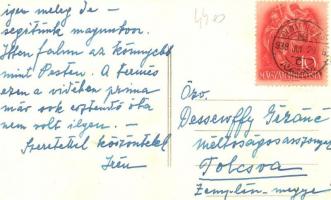 igen meleg de –
segítünk magunkon.
Itten falun az könnyebb
mint Pesten. A termés
ezen a vidéken prima
már sok esztendő óta
nem volt ilyen. –
Szeretettel köszöntelek
Irén
MAGYARORSZÁG
10
Özv.
Dessewffy Gézáné
méltóságosasszonynak
Tolcsva
Zemplén-megye